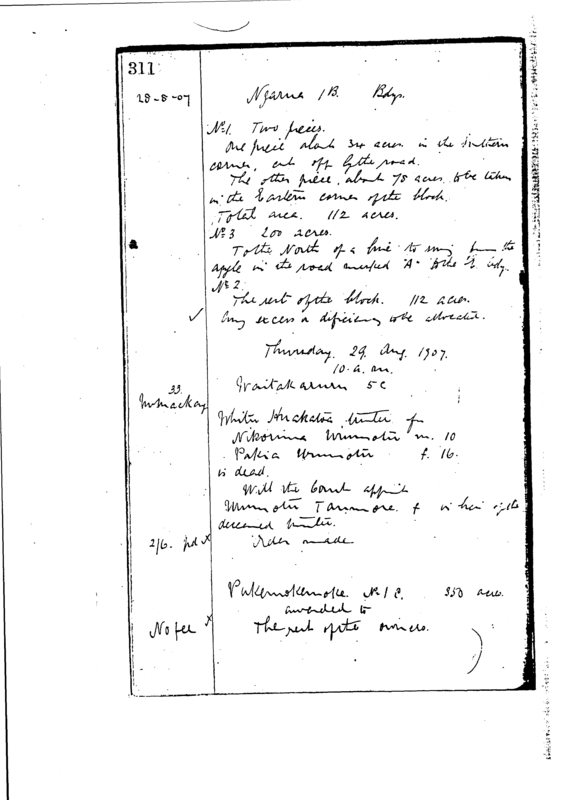 311
28-8-07 Ngarua 1B. Bdys.
No 1. Two pieces.
One piece about 34 acres in the Southern
corner, cut off by the road.
The other piece, about 78 acres, to be taken
in the Eastern corner of the block.
Total area. 112 acres.
No 3 200 acres.
To the North of a line to run from the
angle in the road marked "A" to the E bdy.
No 2.
The rest of the block. 112 acres.
Any excess or deficiency to be allocated.
Thursday. 29. Aug. 1907.
10. a.m.
Waitakaruru 5C
33
Mackay
trustee for
m. 10
f. 16.
is dead.
Will the Court appoint
f in lieu of the
deceased trustee.
2/6. pd x Order made
Pukemokemoke. No 1 350 acres.
amended to
No fee x The rest of the owners.